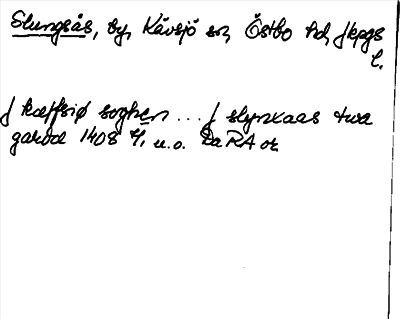 Slungsås, by, Kävsjö sn, Östbo hd, Jkpgs
l.
J kæffsiø soghen ... J slynxaas twa
garda 1408 4/1 u.o. DaRA or.